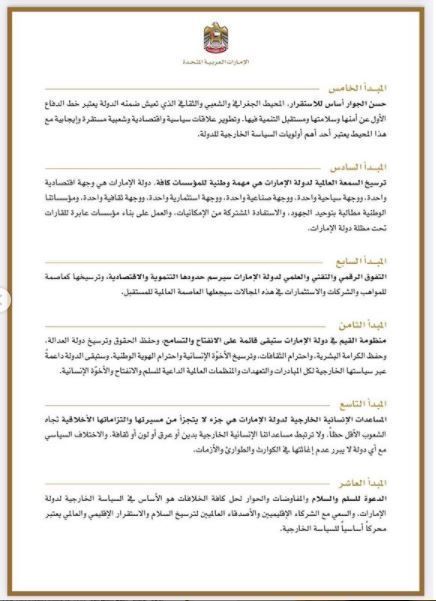 الإمارات العربية المتحدة
المبدأ الخامس
حسن الجوار أساس للاستقرار، المحيط الجغرافي والشعبي والثقافي الذي تعيش ضمنه الدولة يعتبر خط الدفاع
الأول عن أمنها وسلامتها ومستقبل التنمية فيها. وتطوير علاقات سياسية واقتصادية وشعبية مستقرة وإيجابية مع
هذا المحيط يعتبر أحد أهم أولويات السياسة الخارجية للدولة.
المبدأ السادس
ترسيخ السمعة العالمية لدولة الإمارات هي مهمة وطنية للمؤسسات كافة. دولة الإمارات هي وجهة اقتصادية
واحدة، ووجهة سياحية واحدة، ووجهة صناعية واحدة، ووجهة استثمارية واحدة، ووجهة ثقافية واحدة، ومؤسساتنا
الوطنية مطالبة بتوحيد الجهود، والاستفادة المشتركة من الإمكانيات، والعمل على بناء مؤسسات عابرة للقارات
تحت مظلة دولة الإمارات.
المبدأ السابع
التفوق الرقمي والتقني والعلمي لدولة الإمارات سيرسم حدودها التنموية والاقتصادية، وترسيخها كعاصمة
للمواهب والشركات والاستثمارات في هذه المجالات سيجعلها العاصمة العالمية للمستقبل.
المبدأ الثامن
منظومة القيم في دولة الإمارات ستبقى قائمة على الانفتاح والتسامح، وحفظ الحقوق وترسيخ دولة العدالة،
وحفظ الكرامة البشرية، واحترام الثقافات، وترسيخ الأخوّة الإنسانية واحترام الهوية الوطنية. وستبقى الدولة داعمةً
عبر سياستها الخارجية لكل المبادرات والتعهدات والمنظمات العالمية الداعية للسلم والانفتاح والأخوّة الإنسانية.
المبدأ التاسع
المساعدات الإنسانية الخارجية لدولة الإمارات هي جزء لا يتجزأ من مسيرتها والتزاماتها الأخلاقية تجاه
الشعوب الأقل حظاً. ولا ترتبط مساعداتنا الإنسانية الخارجية بدين أو عرق أو لون أو ثقافة. والاختلاف السياسي
مع أي دولة لا يبرر عدم إغاثتها في الكوارث والطوارئ والأزمات.
المبدأ العاشر
الدعوة للسلم والسلام والمفاوضات والحوار لحل كافة الخلافات هو الأساس في السياسة الخارجية لدولة
الإمارات، والسعي مع الشركاء الإقليميين والأصدقاء العالميين لترسيخ السلام والاستقرار الإقليمي والعالمي يعتبر
محركاً أساسياً للسياسة الخارجية.